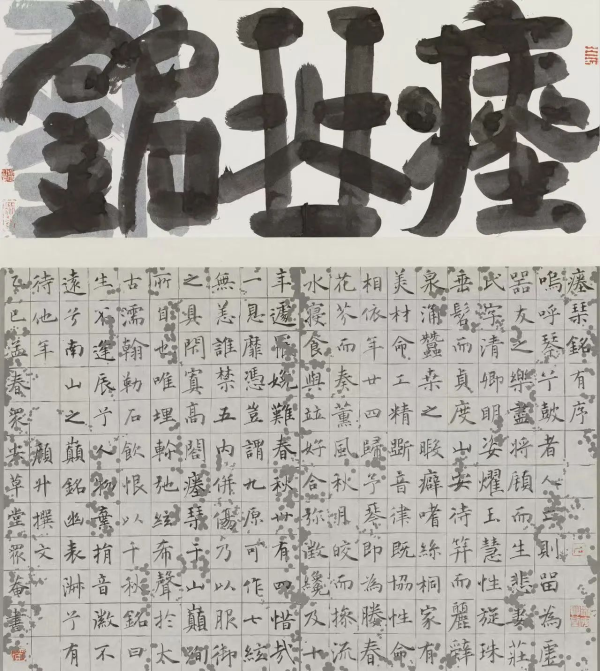 瘞琴銘
瘞琴銘有序
嗚呼琴兮歔者人亡則留為虛
器友之樂盡將顧而生悲妻莊
氏字清卿明姿燿玉慧性旋珠
垂髫而貞度山安待笄而麗辭
泉涌蠶桑之暇癖嗜絲桐家有
美材命工精斵音律既協性命
相依年廿四歸予琴即為媵春
花芬而奏薰風秋月皎而操流
水寢食與竝好合弥徵纔及十
年遽罹娩難春秋卅有四惜哉
一息靡憑豈謂九原可作七絃
無恙誰禁五內併傷乃以服御
之具閑寘高閣瘞琴于山巔殉
所自也唯埋軫弛絃希聲於太
古濡翰勒石飲恨以千秋銘曰
生不逢辰兮人物棄捐音徽不
遠兮南山之巔銘幽表淋兮有
待他年 顏升撰文
丁巳孟春眾芳草堂眾菴書